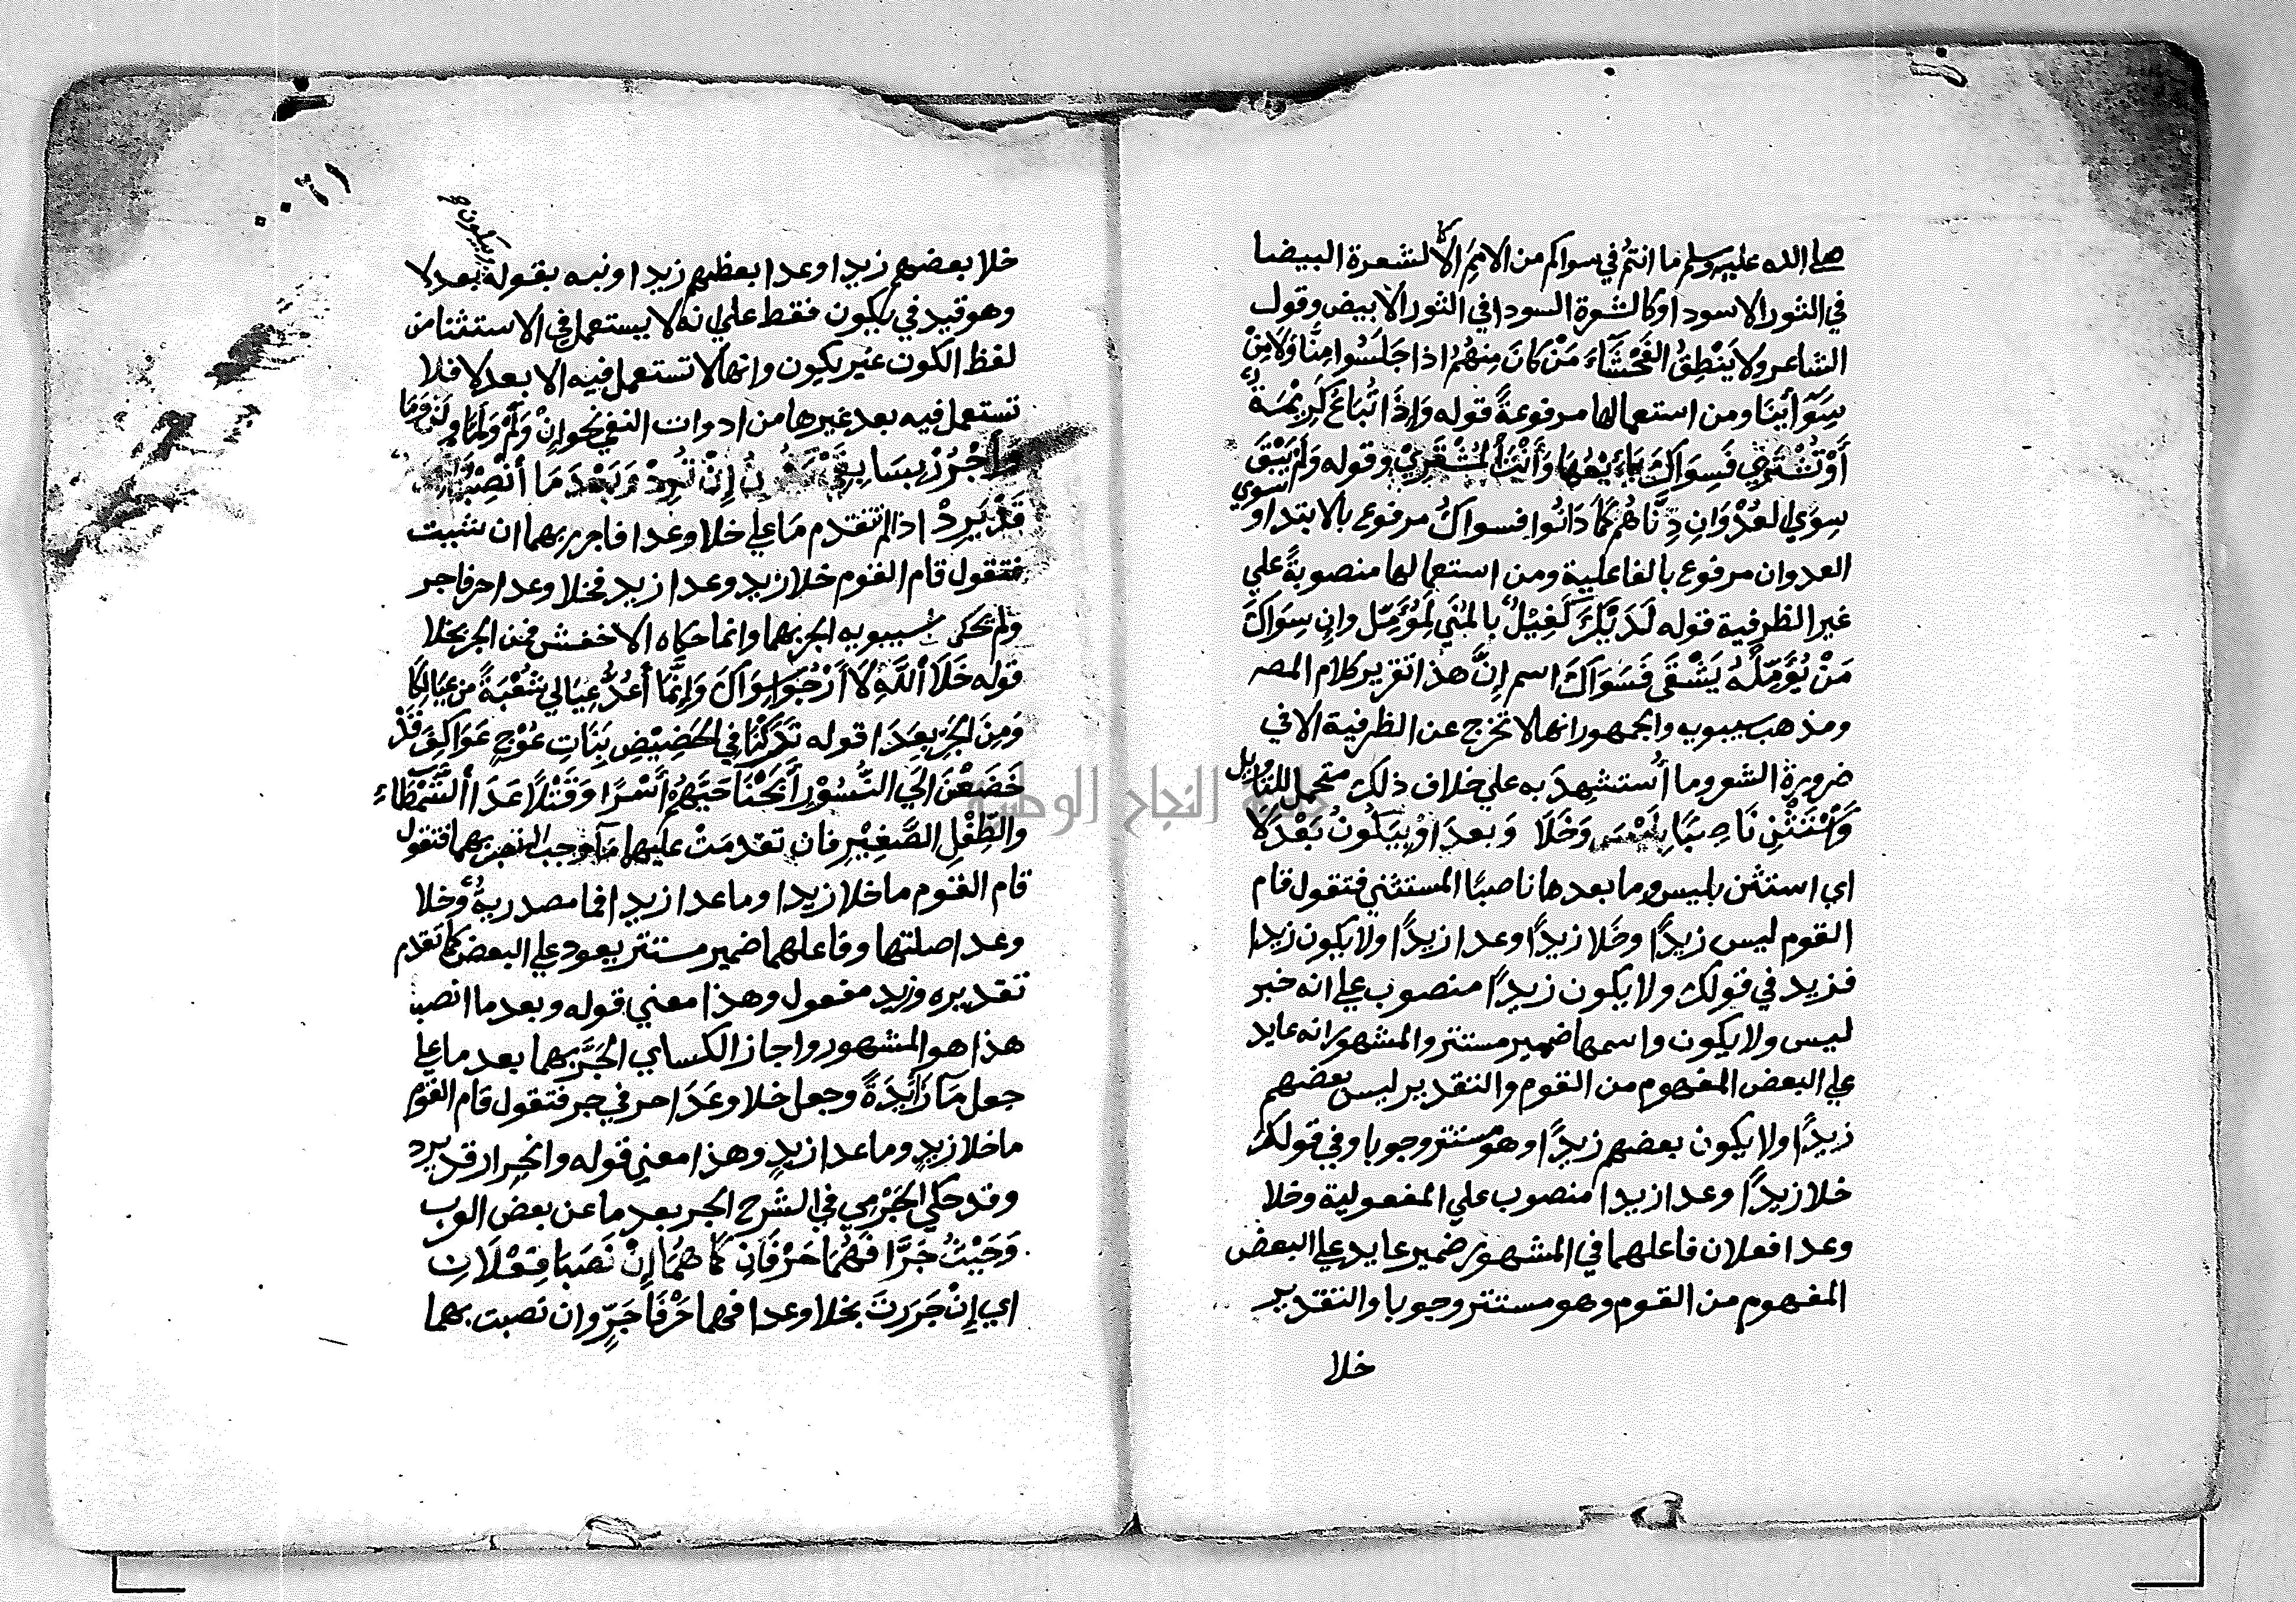 صلى الله عليه وسلم ما انتم في سواكم من الامم الا كالشعرة البيضا
في الثور الاسود او كالشعرة السودا في الثور الابيض وقول
الشاعر ولا يَنْطِقُ الفَحْشَاءَ مَنْ كانَ مِنهُمُ اذا جَلَسُوا مِنَّا وَلَا مِنْ
سِوَآئِنَا ومن استعمالها مرفوعةً قوله وَإِذَا تُبَاعُ كَرِيْمَةٌ
أَوْ تُشْتَرَي فَسِوَاكَ بَاءِيْعُهَا وَأَنْتَ الْمُشْتَرِيْ وقوله وَلَمْ يَبْقَ
سِوَى العُدْوَانِ دِنَّاهُمْ كَمَا دَانُوا فسواك مرفوع بالابتدا وسوي
العدوان مرفوع بالفاعلية ومن استعمالها منصوبةً علي
غير الظرفية قوله لَدَيْكَ كَفِيْلٌ بالمُنَي لِمُؤَمِّل وان سِوَاكَ
مَنْ يُؤَمِّلُهُ يَشْقَى فَسَوَاكَ اسم إِنَّ هذا تقرير كلام المصـ
ومذهب سيبويه والجمهور انها لا تخرج عن الظرفية الا في
ضرورة الشعر وما اُستشهِدَ به علي خلاف ذلك محتمل للتاويل
وَاسْتَثْنِ نَاصِبًا بِلَيْسَ وَخَلَا وَبعدَا وَبِيَكُونُ بَعْدَ لَا
اي استثن بليس وما بعدها ناصبًا المستثني فتقول قام
القوم ليس زيدًا وخَلا زيدًا وعدا زيدًا ولا يكون زيدا
فزيد في قولك ولا يكون زيدًا منصوب على انه خبر
ليس ولا يكون واسمها ضمير مستتر والمشهور انه عايد
علي البعض المفهوم من القوم والتقدير ليس بعضهم
زيدًا ولا يكون بعضهم زيدًا وهو مستتر وجوبا وفي قولك
خلا زيدًا وعدا زيدا منصوب علي المفعولية وخلا
وعدا فعلان فاعلهما في المشهور ضمير عايد علي البعض
المفهوم من القوم وهو مستتر وجوبا والتقدير
خلا
خلا بعضهم زيدا وعدا بعظهم زيدا ونبه بقوله بيكون بعد لا
وهو قيد في يكون فقط علي انه لا يستعمل في الاستثنا من
لفظ الكون غير يكون وانها لا تستعمل فيه الا بعد لا فلا
تستعمل فيه بعد غيرها من ادوات النفي نحو اِنْ وَلَمْ وَلَمَّا وَلَنْ وَمَا
وَاجْرُرْ بِسَابِقَيْ يَكُونُ إِنْ تُرِدْ وَبَعْدَ مَا أَنْصِبْ
قَدْ يَرِدْ اذا لم تتقدم مَا علي خلا وعدا فاجرر بهما ان شيت
فتقول قام القوم خلا زيد وعدا زيد فخلا وعدا حرفا جر
ولم يحكى سيبويه الجر بهما وانما حكاه الاخفش فمن الجر بخلا
قوله خَلَا اللَّهِ لَا أَرْجُوا سِوَاكَ وَإِنَّمَا أَعُدُّ عِيَالِي شُعْبَةً من عِيَالِكَا
وَمِنَ الجَرِّ بِعَدَا قوله تَرَكْنَا فِي الحَضِيْضِ بَنَاتِ عَوْجٍ عَوَاكِفَ قَدْ
خَضَعْنَ الَي النُّسُوْرِ أَبَحْنَا حَيَّهُمْ أَسْرًا وَقَتْلًا عَدَا الشَّمْطَاءِ
والطِّفْلِ الصَّغِيْرِ فان تقدمَتْ عليهما مَا وجب النصب بهما فتقول
قام القوم ما خلا زيدا وما عدا زيدا فما مصدريةٌ وخلا
وعدا صلتها وفاعلهما ضمير مستتر يعود علي البعض كما تقدم
تقديره وزيد مفعول وهذا معني قوله وبعد ما انصب
هذا هو المشهور واجاز الكساي الجَرَّ بهما بعد ما علي
جعل مَا زَايِدَةً وجعل خلا وعَدَا حرفي جر فتقول قام القوم
ما خلا زيدٍ وما عدا زيدٍ وهذا معني قوله وانجرار قد يرد
وقد حكي الجَرْمِي في الشرح الجر بعد ما عن بعض العرب
وَحَيْثُ جَرَّا فَهُمَا حَرْفَانِ كَمَا هُمَا إِنْ نَصَبَا فِعْلَانِ
اي إِنْ جَرَرتَ بخلا وعدا فهما حَرْفَا جَرٍّ وان نصبت بهما
جامعة النجاح الوطنية